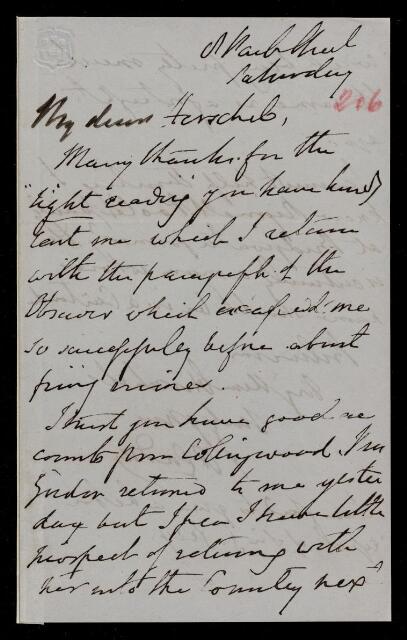 8 Park Street
Saturday
206
My dear Herschel,
Many thanks for the
"light reading" you have kindly
lent me which I return
with the paragraph of the
Observer which escaped me
so successfully before about
firing mines.
I trust you have good ac
counts from Collingwood. Mrs
Gordon returned to me yester
day but I fear I have little
prospect of returning with
her into the Country next